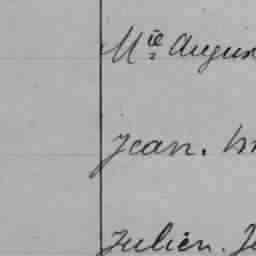 Mie Augus
Jean.
Julien. J